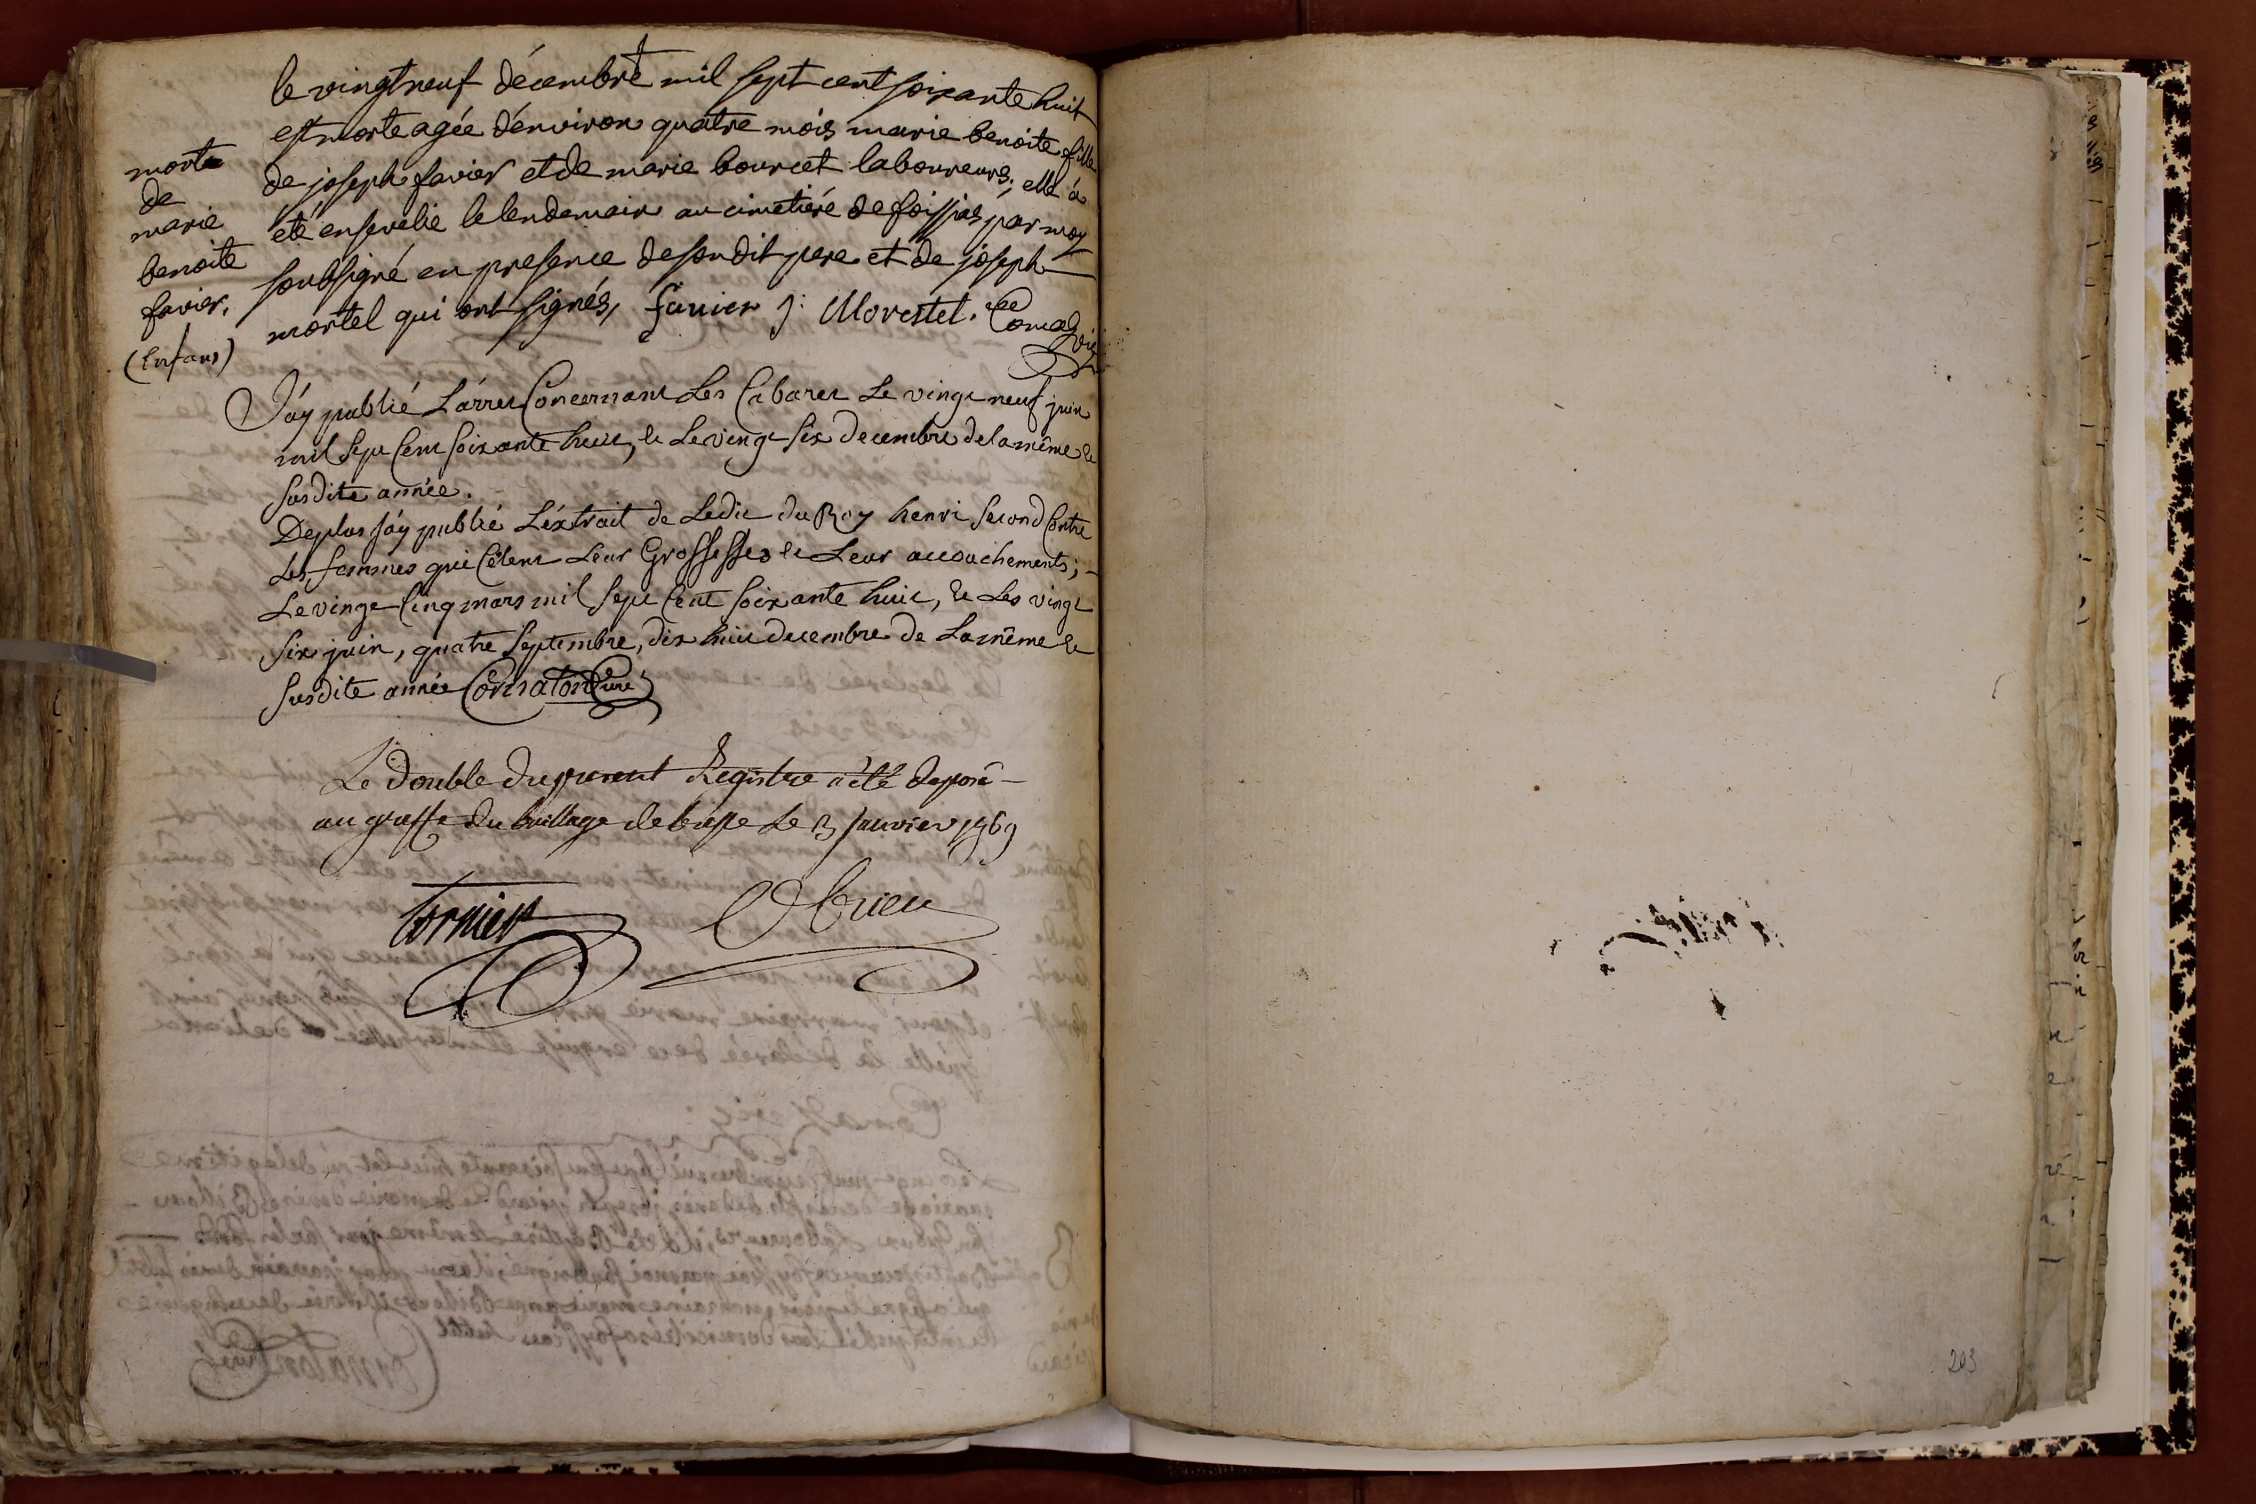 le vingtneuf décembre mil sept cent soixante huit
est morte agée d'environ quatre mois marie benoite fille
de joseph favier et de marie bourcet laboureurs; elle à
eté ensevelie le lendemain au cimetiére de foissias par moy
soubsigné en presence de son dit pere et de joseph
mortel qui ont signés, favier j: Morestel.
morte
de
marie
benoite
favier.
(Enfans)
J'áy publié L'árret Concernant Les Cabaret Le vingt neuf juin
mil sept Cent soixante huit, et Le vingt six decembre de la même et
susdite année.
Deplus J'áy publié L'éxtrait de Ledit du Roy henri second Contre
Les femmes qui Célent Leur Grossesses et Leur accouchements;
Le vingt Cinq mars mil sept Cent soixante huit, et Les vingt
six juin, quatre septembre, dix huit decembre de La même et
susdite année Cornaton Curé
Le Double du present Registre a été deposé
au greffe du bailliage de bresse Le 3 janvier 1769
203